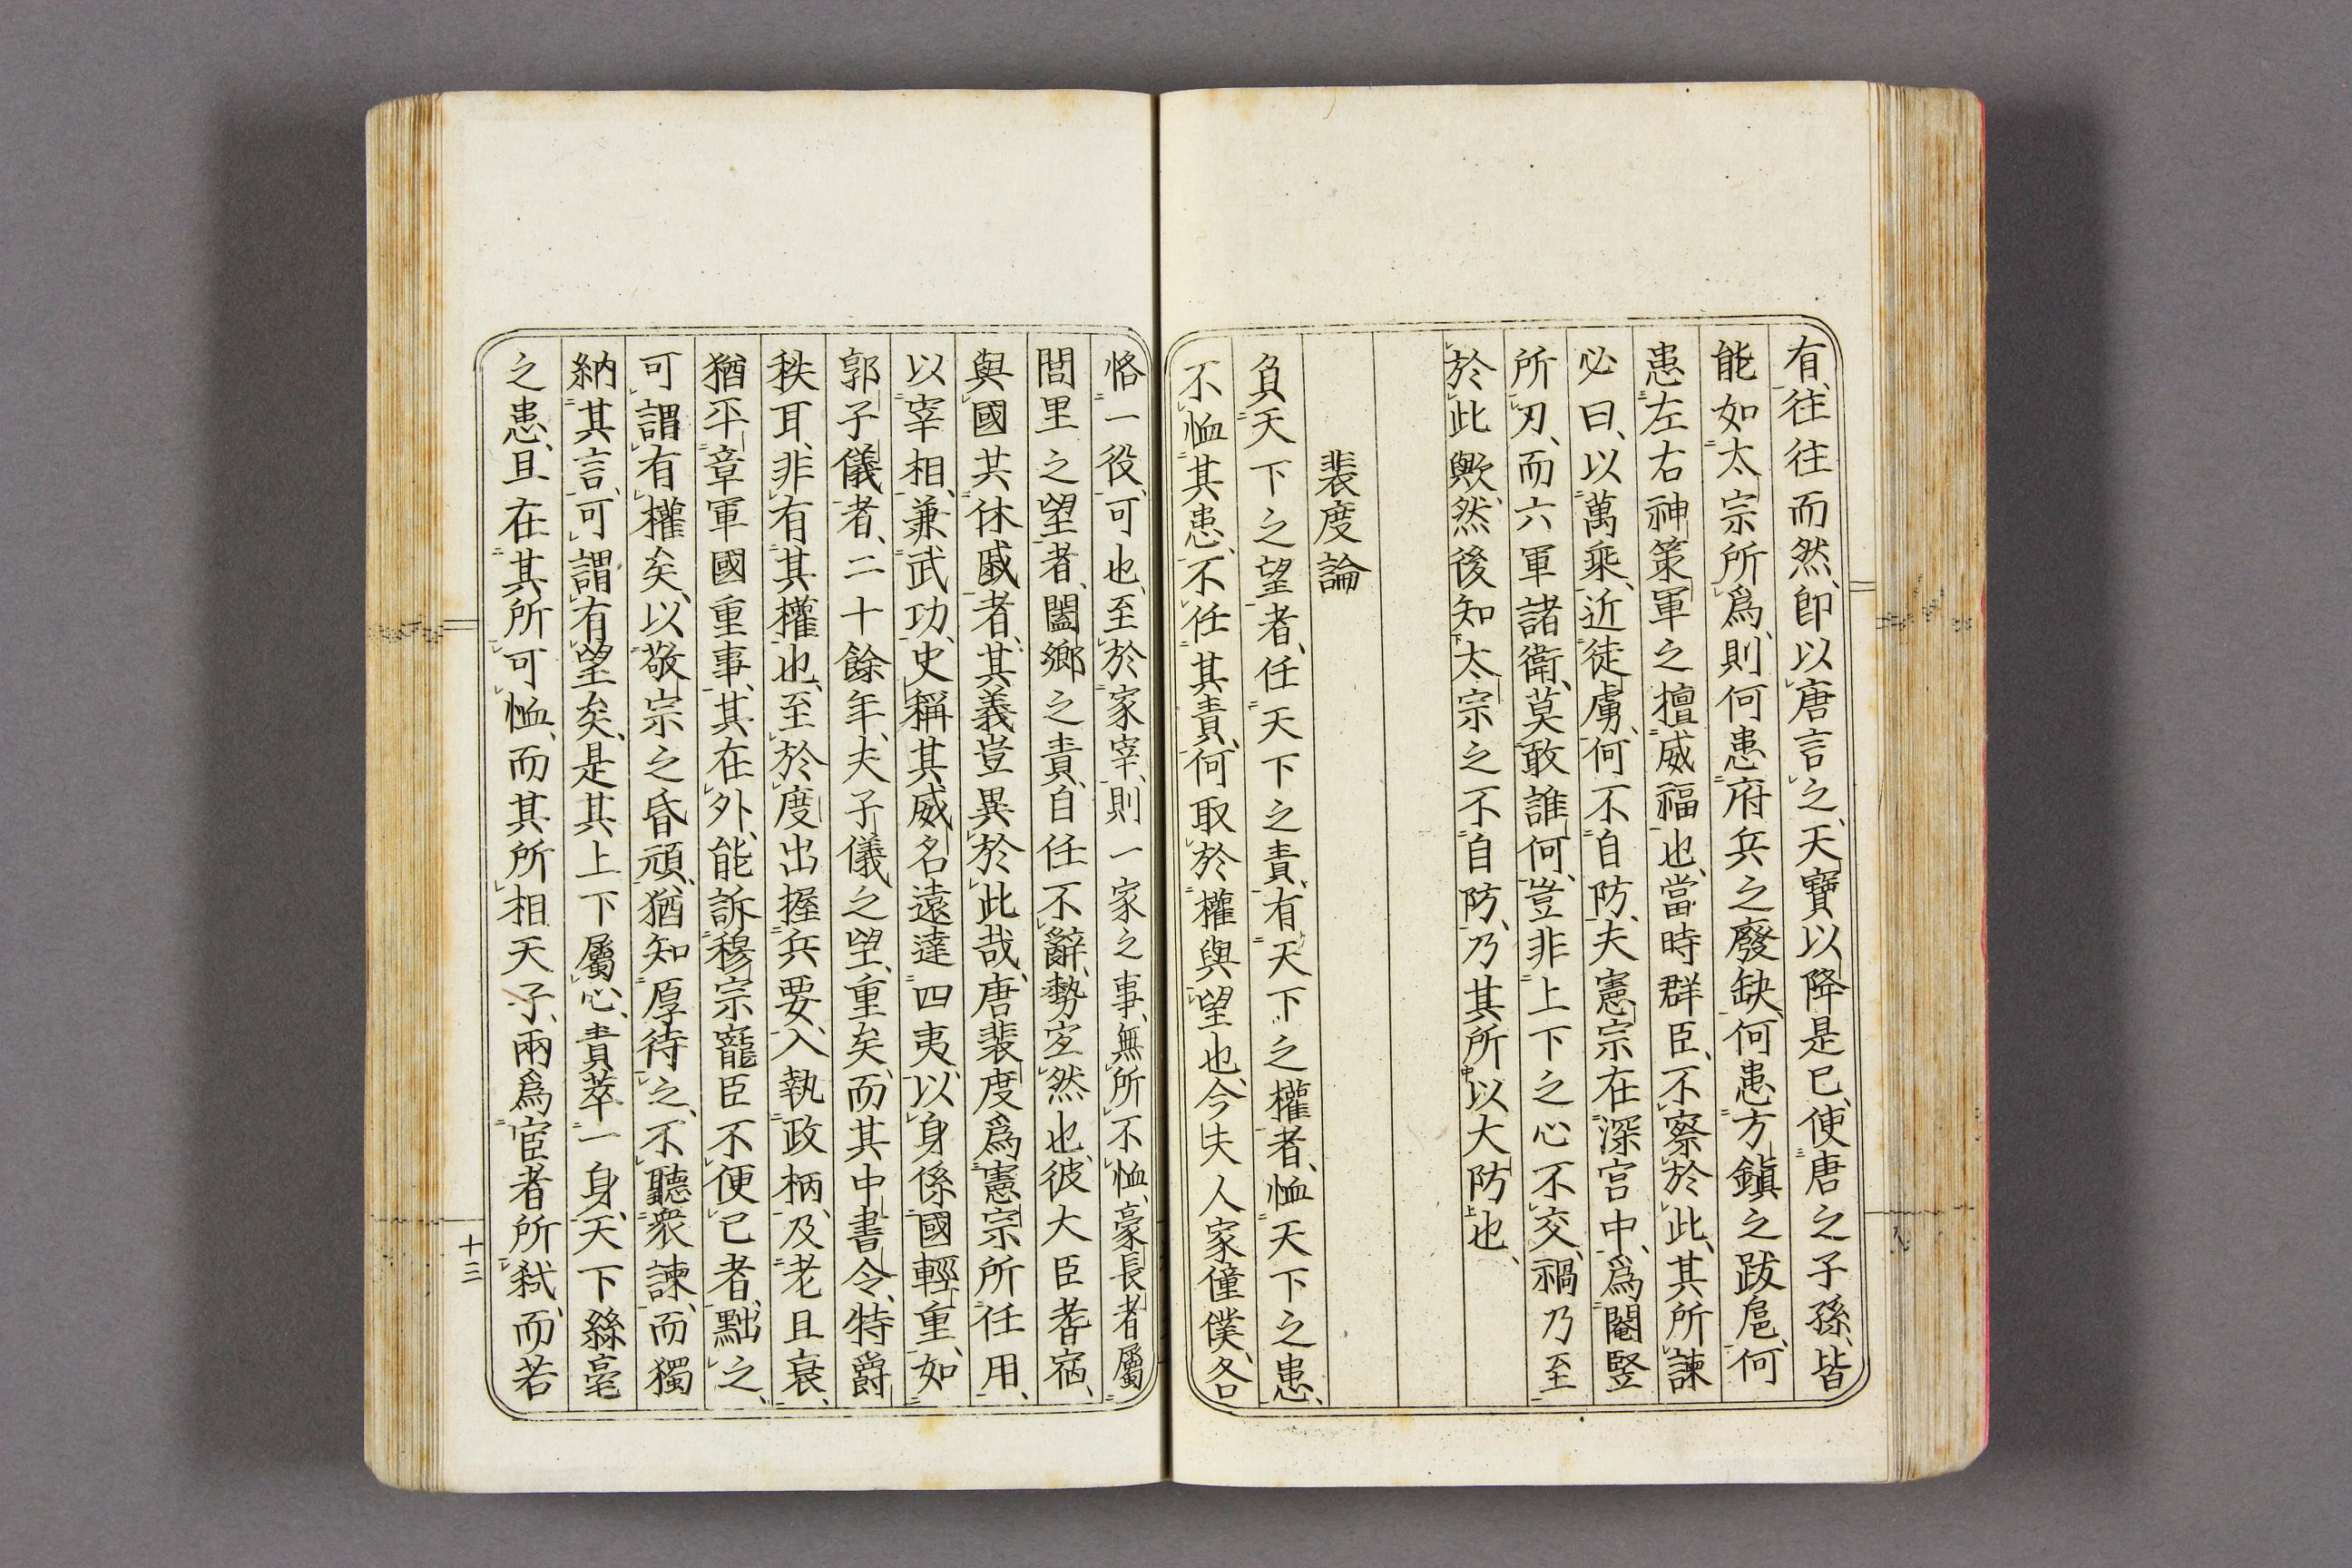 有、往往而然、卽以唐言之、天寶以降是已、使唐之子孫、皆
能如太宗所爲、則何患府兵之廢缺、何患方鎭之跋扈、何
患左右神策軍之擅威福也、當時群臣、不察於此、其所諫
必曰、以萬乘、近徒虜、何不自防、夫憲宗在深宮中、爲閹竪
所刃、而六軍諸衞、莫敢誰何、豈非上下之心不交、禍乃至
於此歟、然後知太宗之不自防、乃其所以大防也、
裴度論
負天下之望者、任天下之責、有天下之權者、恤天下之患、
不恤其患、不任其責、何取於權與望也、今夫人家僮僕、各
恪一役、可也、至於家宰、則一家之事、無所不恤、豪長者屬
閭里之望者、闔鄉之責、自任不辭、勢宜然也、彼大臣耆宿、
與國共休戚者、其義豈異於此哉、唐裴度爲憲宗所任用、
以宰相、兼武功、史稱其威名遠達四夷、以身係國輕重、如
郭子儀者、二十餘年、夫子儀之望、重矣、而其中書令、特爵
秩耳、非有其權也、至於度出握兵要、入執政柄、及老且衰、
猶平章軍國重事、其在外、能訴穆宗寵臣不便已者、黜之、
可謂有權矣、以敬宗之昏頑、猶知厚待之、不聽衆諫、而獨
納其言、可謂有望矣、是其上下屬心、責萃一身、天下絲毫
之患、且在其所可恤、而其所相天子、兩爲宦者所弑、而若
十三